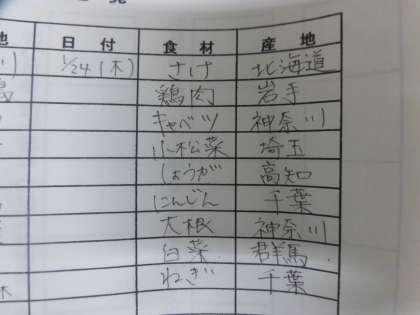 日付 食材 産地
1/24(木) さけ 北海道
鶏肉 岩手
キャベツ 神奈川
小松菜 埼玉
しょうが 高知
にんじん 千葉
大根 神奈川
白菜 群馬
ねぎ 千葉